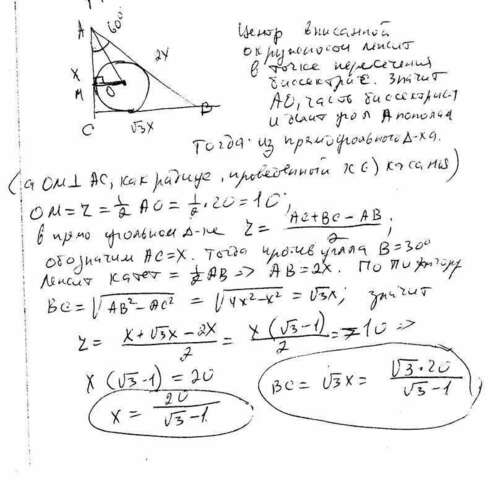 A
60°
2X
X
M
O
C
√3X
B
Центр вписанной
окружности лежит
в точке пересечения
биссектрис. Значит
АО, часть биссектрисы
и делит угол А пополам
Тогда: из прямоугольного Δ-ка
(а ОМ⊥АС, как радиус, проведенный к касат)
OM = r = 1/2 AO = 1/2 · 20 = 10;
в прямоугольном Δ-ке r = (AC+BC-AB)/2;
обозначим AC=X. Тогда против угла B=30°
лежит катет = 1/2 AB => AB=2X. По Пифагору
BC = √(AB²-AC²) = √(4x²-x²) = √3x; значит
r = (x+√3x-2x)/2 = x(√3-1)/2 = 10 =>
x(√3-1) = 20
x = 20/(√3-1)
BC = √3x = √3·20/(√3-1)